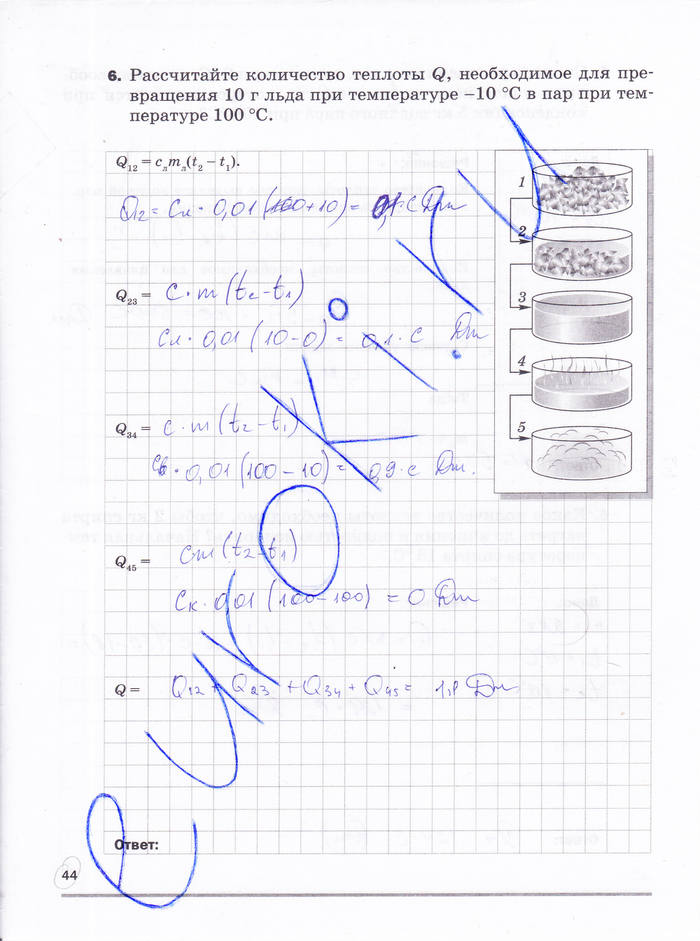 6. Рассчитайте количество теплоты Q, необходимое для пре-
вращения 10 г льда при температуре –10 °С в пар при тем-
пературе 100 °С.
Q₁₂ = cлmл(t₂ – t₁).
1
2
3
4
5
Q₂₃ = c·m(t₂–t₁)
Cл·0,01(10–0) = 0,1·c Дж
Q₃₄ = c·m(t₂–t₁)
·0,01(100–10) = 0,9·c Дж.
Q₄₅ = cm(t₂–t₁)
Cк·0,01(100–100) = 0 Дж
Q = Q₁₂ + Q₂₃ + Q₃₄ + Q₄₅ = Дж
Ответ:
44